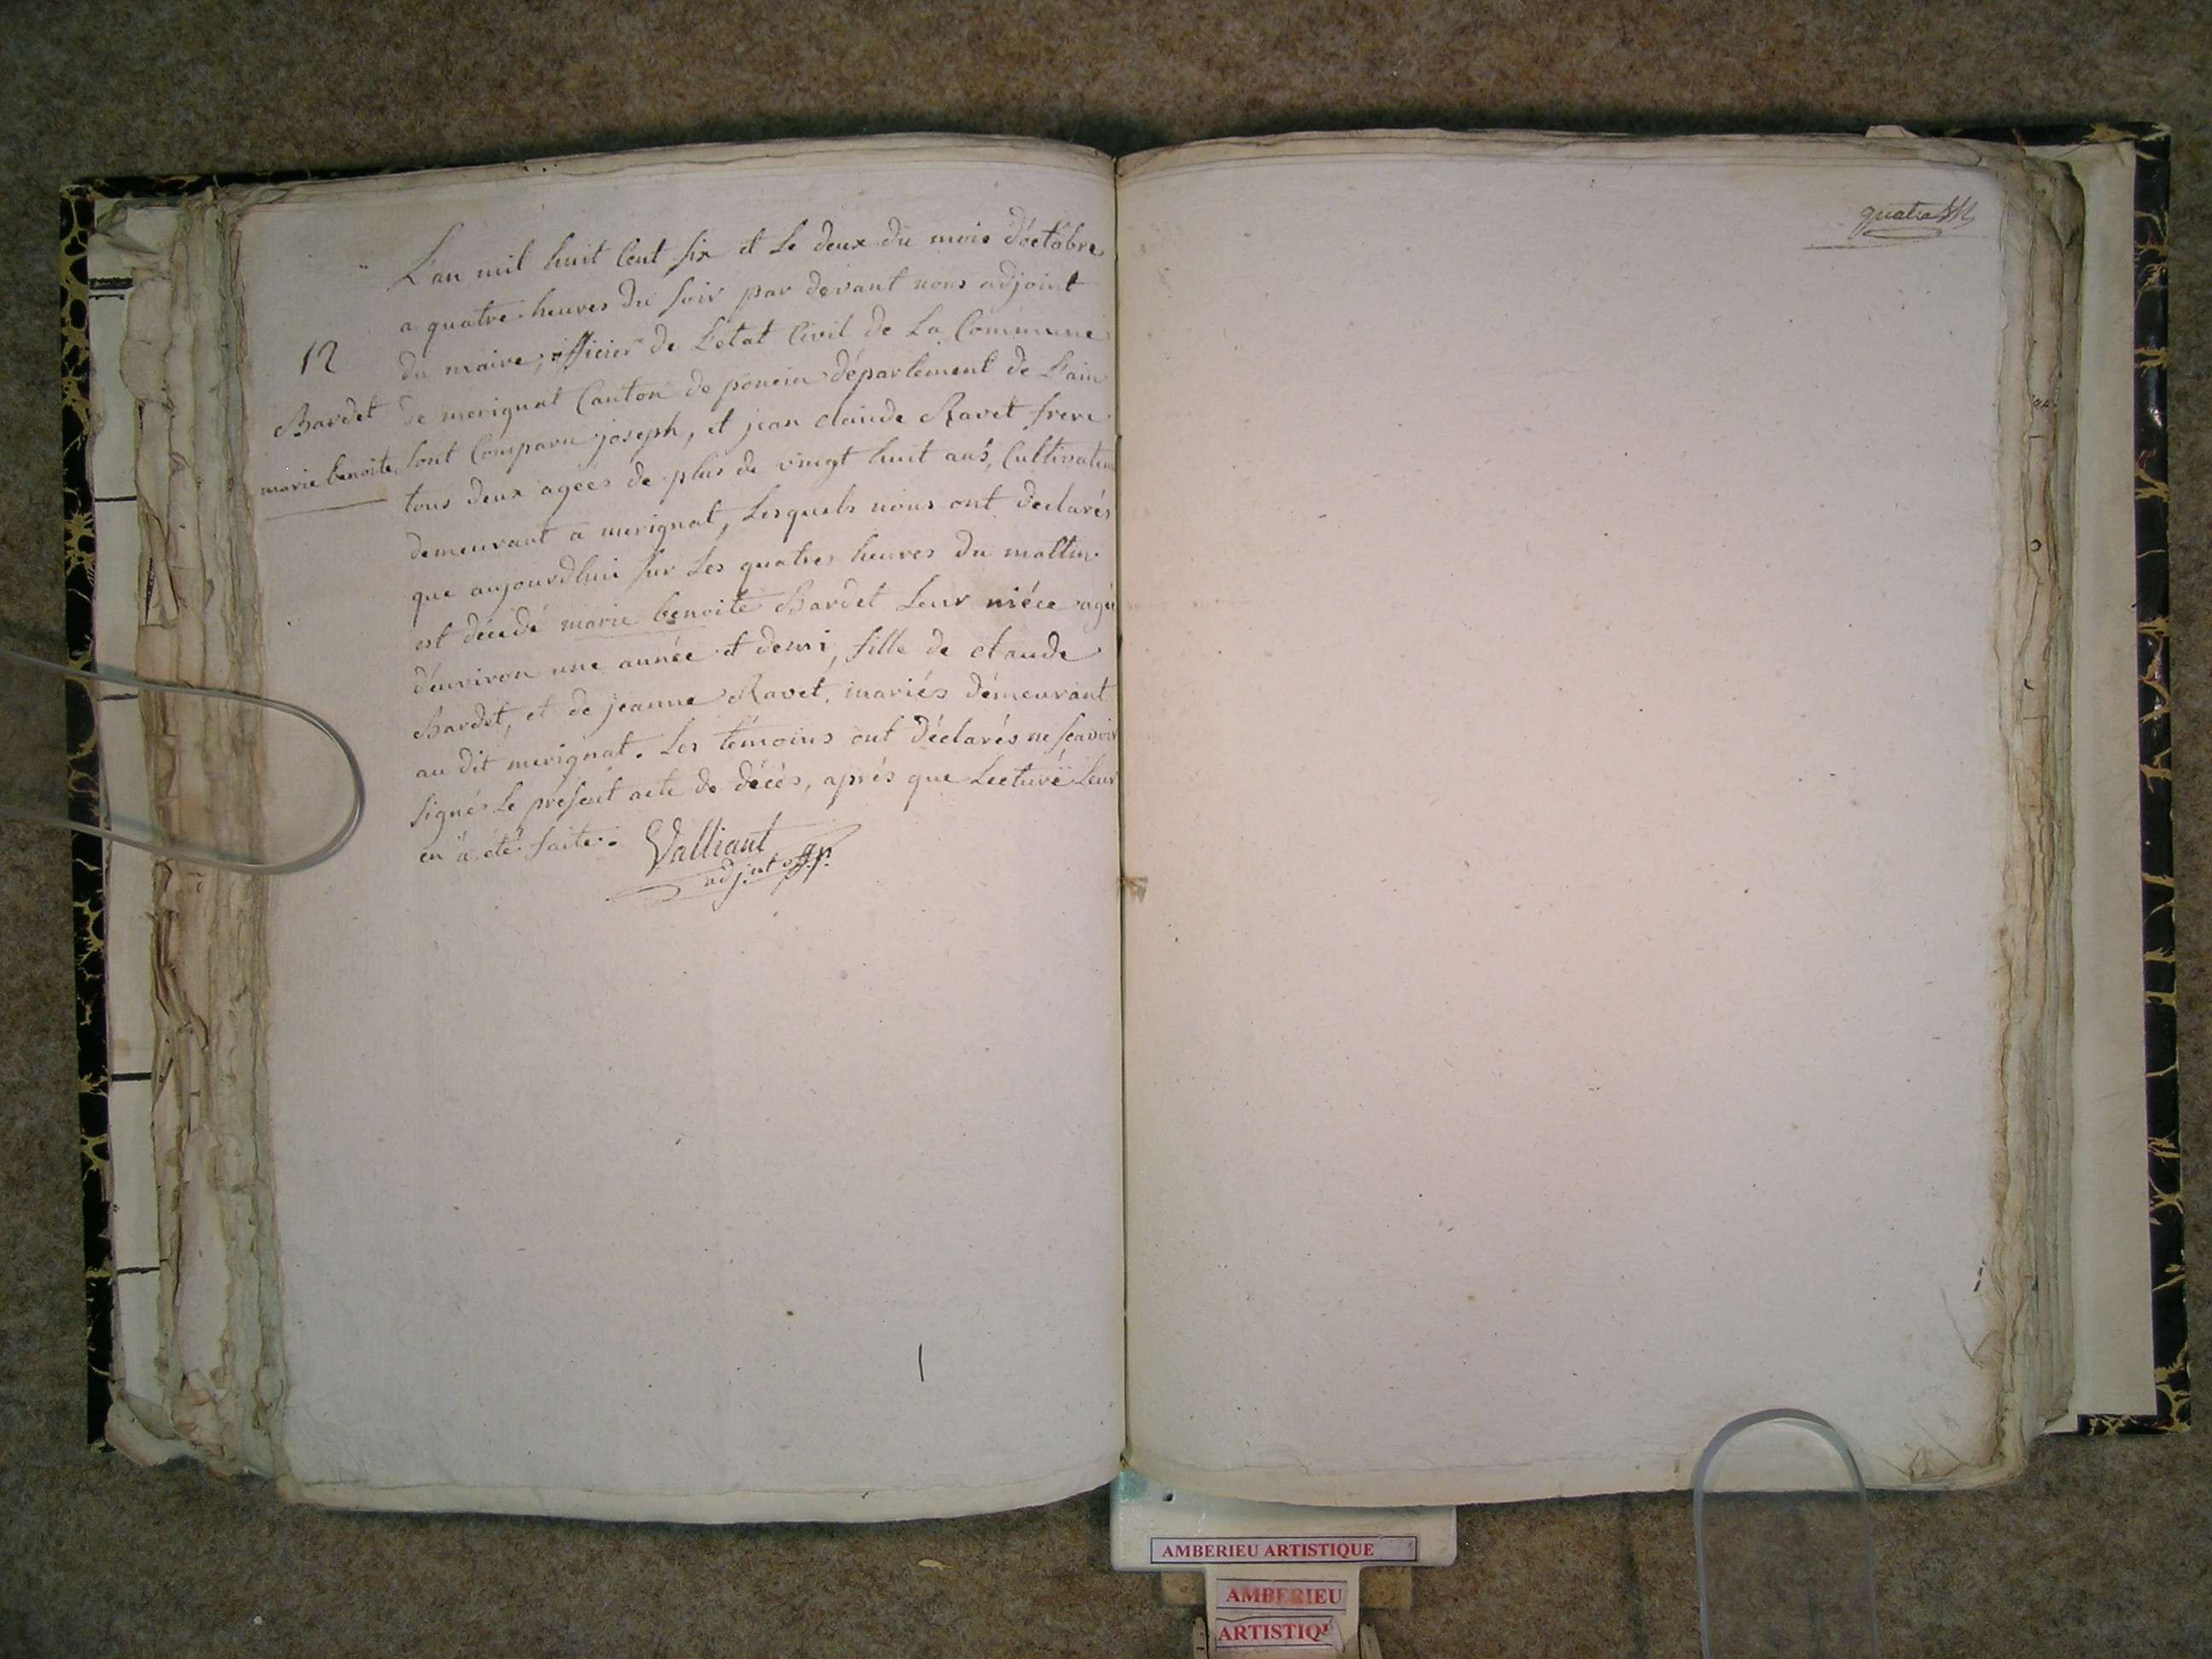 L'an mil huit Cent six et le deux du mois d'octobre
a quatre heures du soir par devant nous adjoint
12
du maire, officier de L'état Civil de La Commune
Bardet
de merignat Canton de poncin département de L'ain
marie benoite
sont Comparu joseph, et jean claude Ravet frere
tous deux agées de plus de vingt huit ans, Cultivateur
demeurant a merignat, Lesquels nous ont declarés
que aujourdhui sur Les quatres heures du mattin
est décédé marie benoite Bardet Leur niéce agé
d'environ une année et demi, fille de claude
Bardet, et de jeanne Ravet, mariés démeurant
au dit merignat. Les témoins ont déclarés ne scavoir
signés Le présent acte de décès, aprés que Lecture Leur
en a été faite.
Valliant
adjoint
quatre
AMBERIEU ARTISTIQUE
AMBERIEU
ARTISTIQ